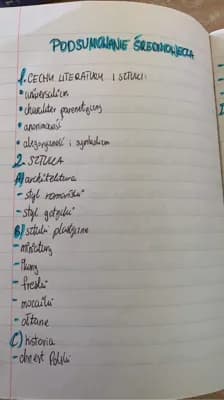 PODSUMOWANIE ŚREDNIOWIECZA
1. CECHY LITERATURY I SZTUKI:
• uniwersalizm
• charakter parenetyczny
• anonimowość
• alegoryczność i symbolizm
2. SZTUKA
A) architektura
- styl romański
- styl gotycki
B) sztuki plastyczne
- miniatury
- ikony
- freski
- mozaiki
- ołtarze
C) historia
- chrzest Polski